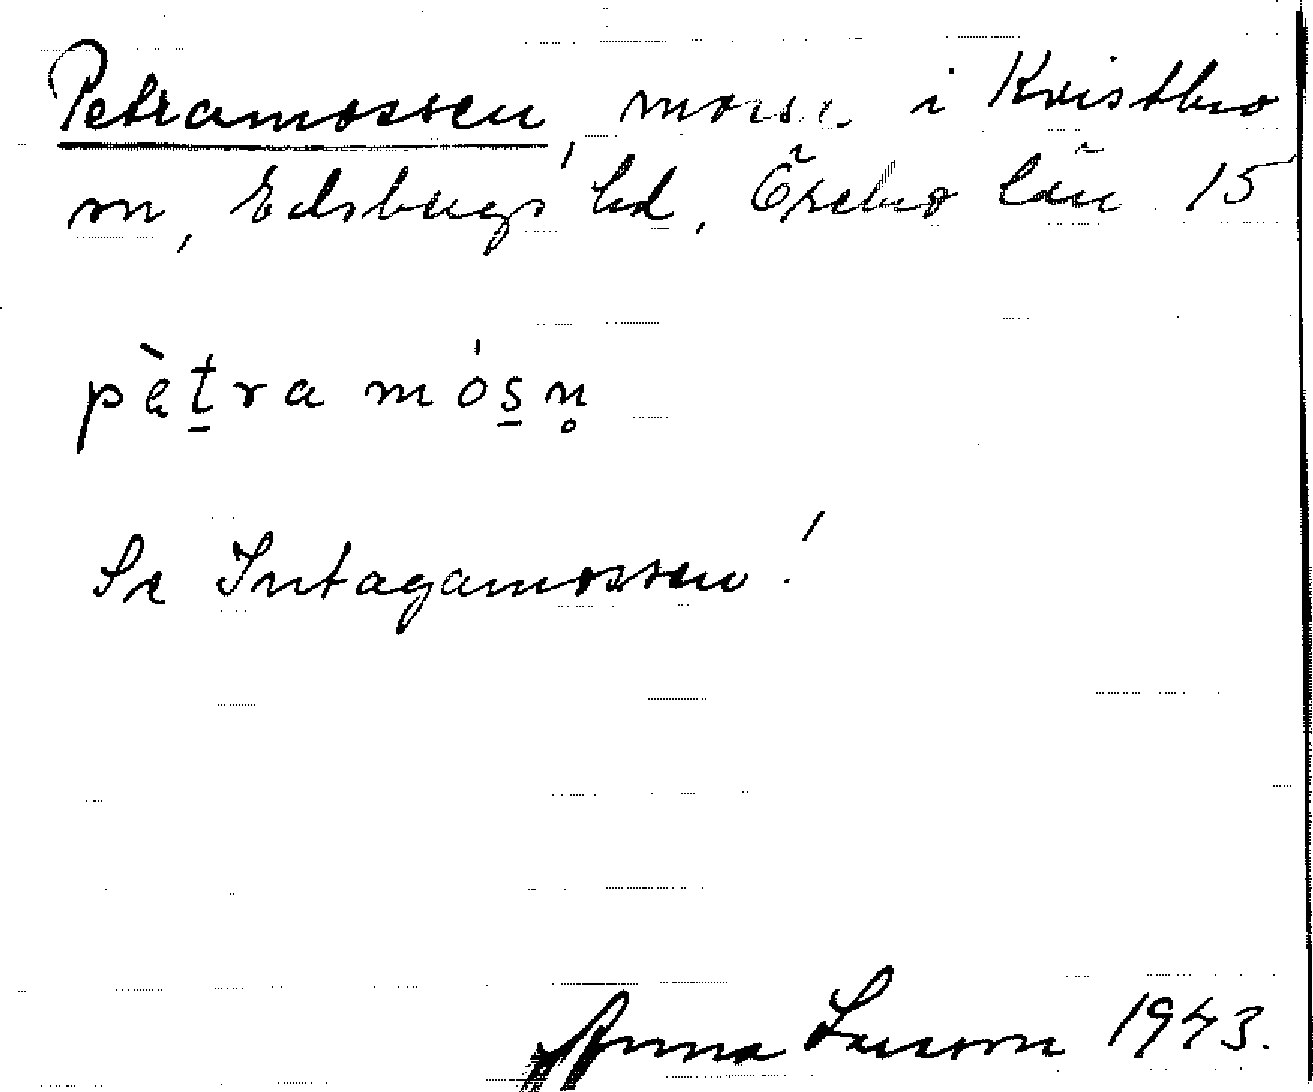 Petramossen, mosse i Kvistbro
sn, Edsbergs hd, Örebro län 15
pètra mósn̥
Se Intagamossen!
Anna Larsson 1943.